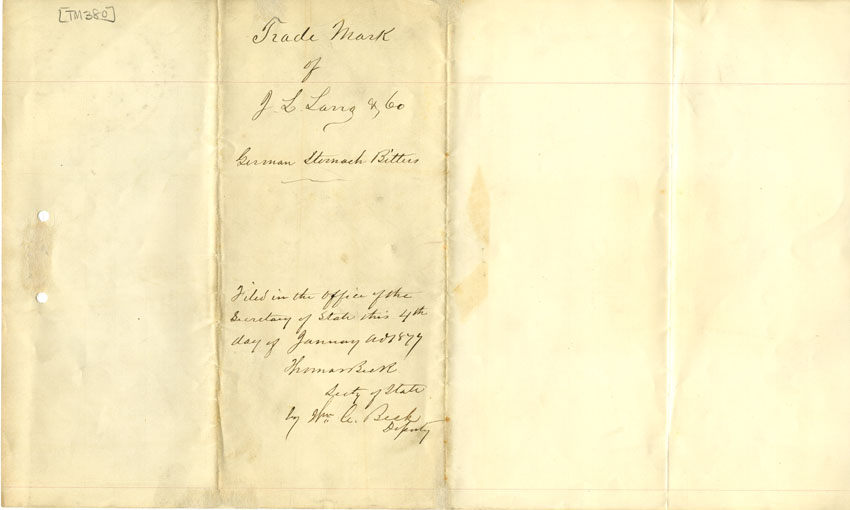 [TM380]
Trade Mark
of
J L Lang & Co
German Stomach Bitters
Filed in the office of the
Secretary of State this 4th
day of January AD 1877
Thomas Beck
Secty of State
by Wm C. Beck
Deputy